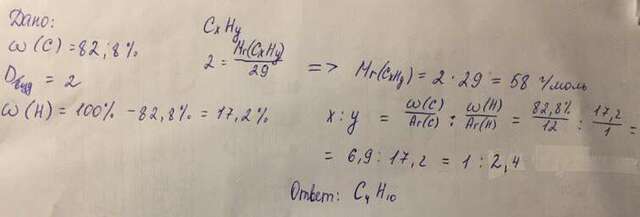 Дано:
ω(C) = 82,8%
Dвозд = 2
ω(H) = 100% - 82,8% = 17,2%
CxHy
2 = Mr(CxHy)/29 => Mr(CxHy) = 2 · 29 = 58 г/моль
x : y = ω(C)/Ar(C) : ω(H)/Ar(H) = 82,8%/12 : 17,2/1 =
= 6,9 : 17,2 = 1 : 2,4
Ответ: C4H10